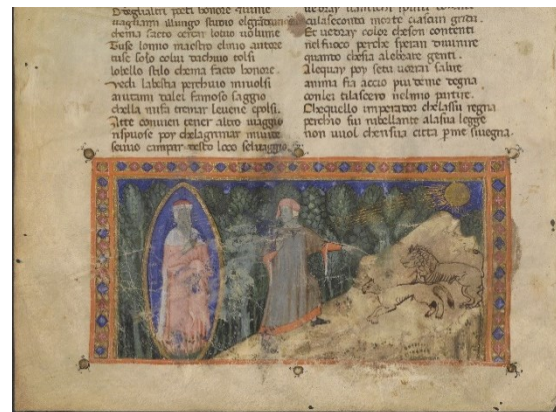 O degli altri poeti honore
uagliami illungo studio elgrãde
chema facto cercar lotuo uolume
Tuse lo mio maestro elmio autore
tuse solo colui dachuio tolsi
lobello stilo chema facto honore.
Vedi labestia perchuio miuolsi
aiutami dalei famoso saggio
chella mi fa tremar leuene epolsi.
Atte conuien tener altro uiaggio
rispuose poy che lagrimar
seuuo campar desto loco seluaggio.
culaseconda morte ciascun grida.
Et uedray color cheson contenti
nel fuoco perche speran diuenire
quanto chesia alebeate genti.
Alequay poy setu uorai salire
anima fia accio piu deme degna
conlei tilascero nelmio partire.
Chequello imperador chelassu regna
perchio fui rubellante alasua legge
non uuol chensua citta pme siuegna.